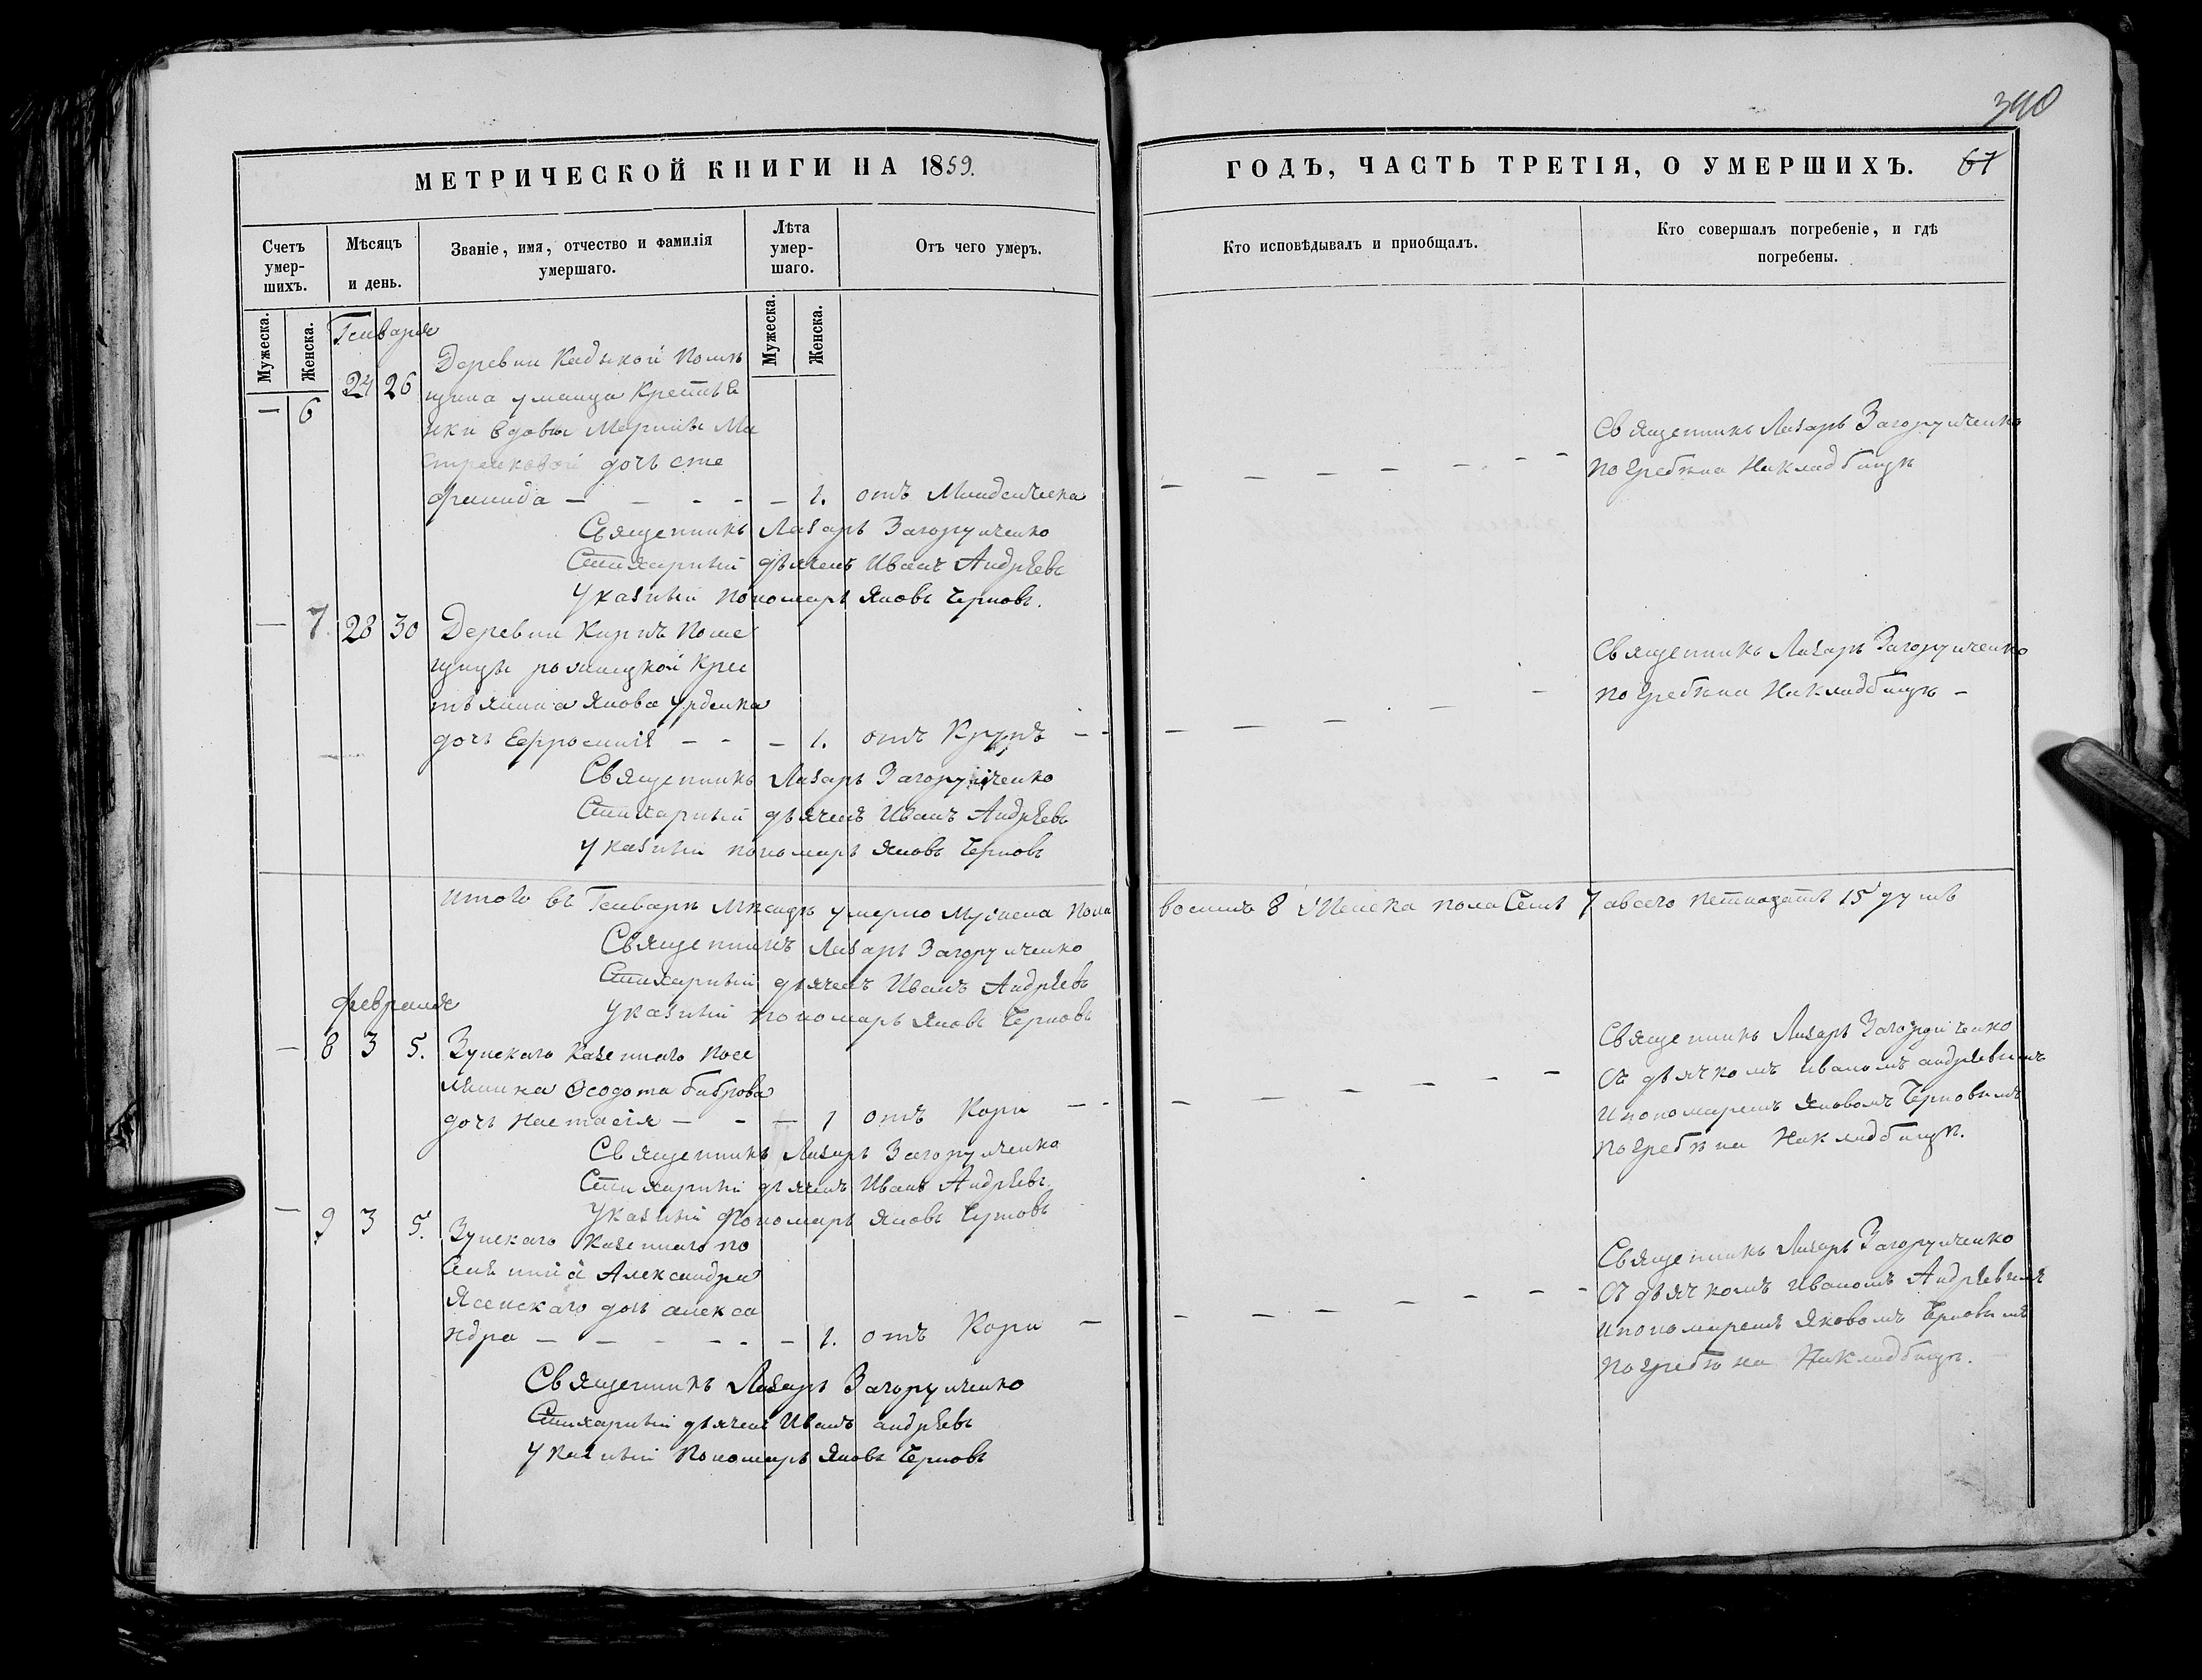 340
МЕТРИЧЕСКОЙ КНИГИ НА 1859.
ГОДЪ, ЧАСТЬ ТРЕТІЯ, О УМЕРШИХЪ. 67
Счетъ умер-шихъ.
Мѣсяцъ и день.
Званіе, имя, отчество и фамилія умершаго.
Лѣта умер-шаго.
Отъ чего умеръ.
Кто исповѣдывалъ и приобщалъ.
Кто совершалъ погребеніе, и гдѣ погребены.
Мужеска.
Женска.
Мужеска.
Женска.
Генваря
— 6 24 26
Деревни Помѣ
щика Крестья
нки вдовы
дочь сте
фанида — 1. отъ Младенческа
Священникъ Лазарь Загоруйченко
погребена На кладбищѣ
Священникъ Лазарь Загоруйченко
Стихарный дьячекъ Иванъ Андрѣевъ
Указный пономарь Яковъ Черновъ.
— 7. 28 30 Деревни Поме
щицы Крес
тьянина Якова
дочь Ефросинія — 1. отъ Крупъ
Священникъ Лазарь Загоруйченко
погребена На кладбищѣ —
Священникъ Лазарь Загоруйченко
Стихарный дьячекъ Иванъ Андрѣевъ
Указный пономарь Яковъ Черновъ
Итого въ Генварѣ Мѣсяцѣ умерло Мужеска пола восимъ 8 Женска пола Семь 7 а всего петнадцать 15 душъ
Священникъ Лазарь Загоруйченко
Стихарный дьячекъ Иванъ Андрѣевъ
Указный пономарь Яковъ Черновъ
Февраля
— 8 3 5. Зуйскаго Казеннаго посе
лянина Өеодота Боброва
дочь Настасія — 1 отъ Кори
Священникъ Лазарь Загоруйченко
Съ дьячкомъ Иваномъ андрѣевымъ
И пономаремъ Яковомъ Черновымъ
погребена На кладбищѣ.
Священникъ Лазарь Загоруйченко
Стихарный дьячекъ Иванъ Андрѣевъ.
Указный Пономарь Яковъ Черновъ
— 9 3 5. Зуйскаго Казеннаго по
Александра
Ясенскаго дочь алекса
ндра — 1. отъ Кори —
Священникъ Лазарь Загоруйченко
Съ дьячкомъ Иваномъ Андрѣевымъ
И пономаремъ Яковомъ Черновымъ
погребена На кладбищѣ.
Священникъ Лазарь Загоруйченко
Стихарный дьячекъ Иванъ андрѣевъ
Указный Пономарь Яковъ Черновъ